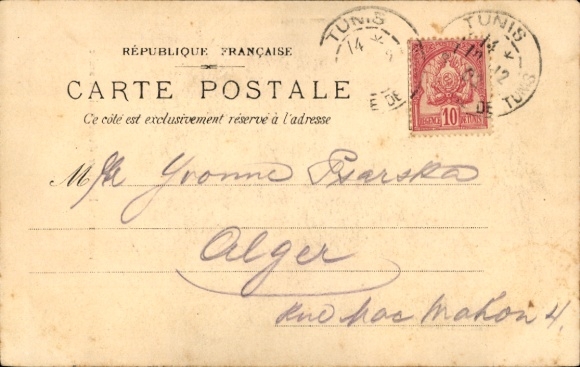 TUNIS
14
TUNIS
14
12
DE TUNIS
RÉPUBLIQUE FRANÇAISE
CARTE POSTALE
Ce côté est exclusivement réservé à l'adresse
POSTES
RÉGENCE 10 DE TUNIS
Mlle Yvonne Psarska
Alger
Rue Mac Mahon 4.